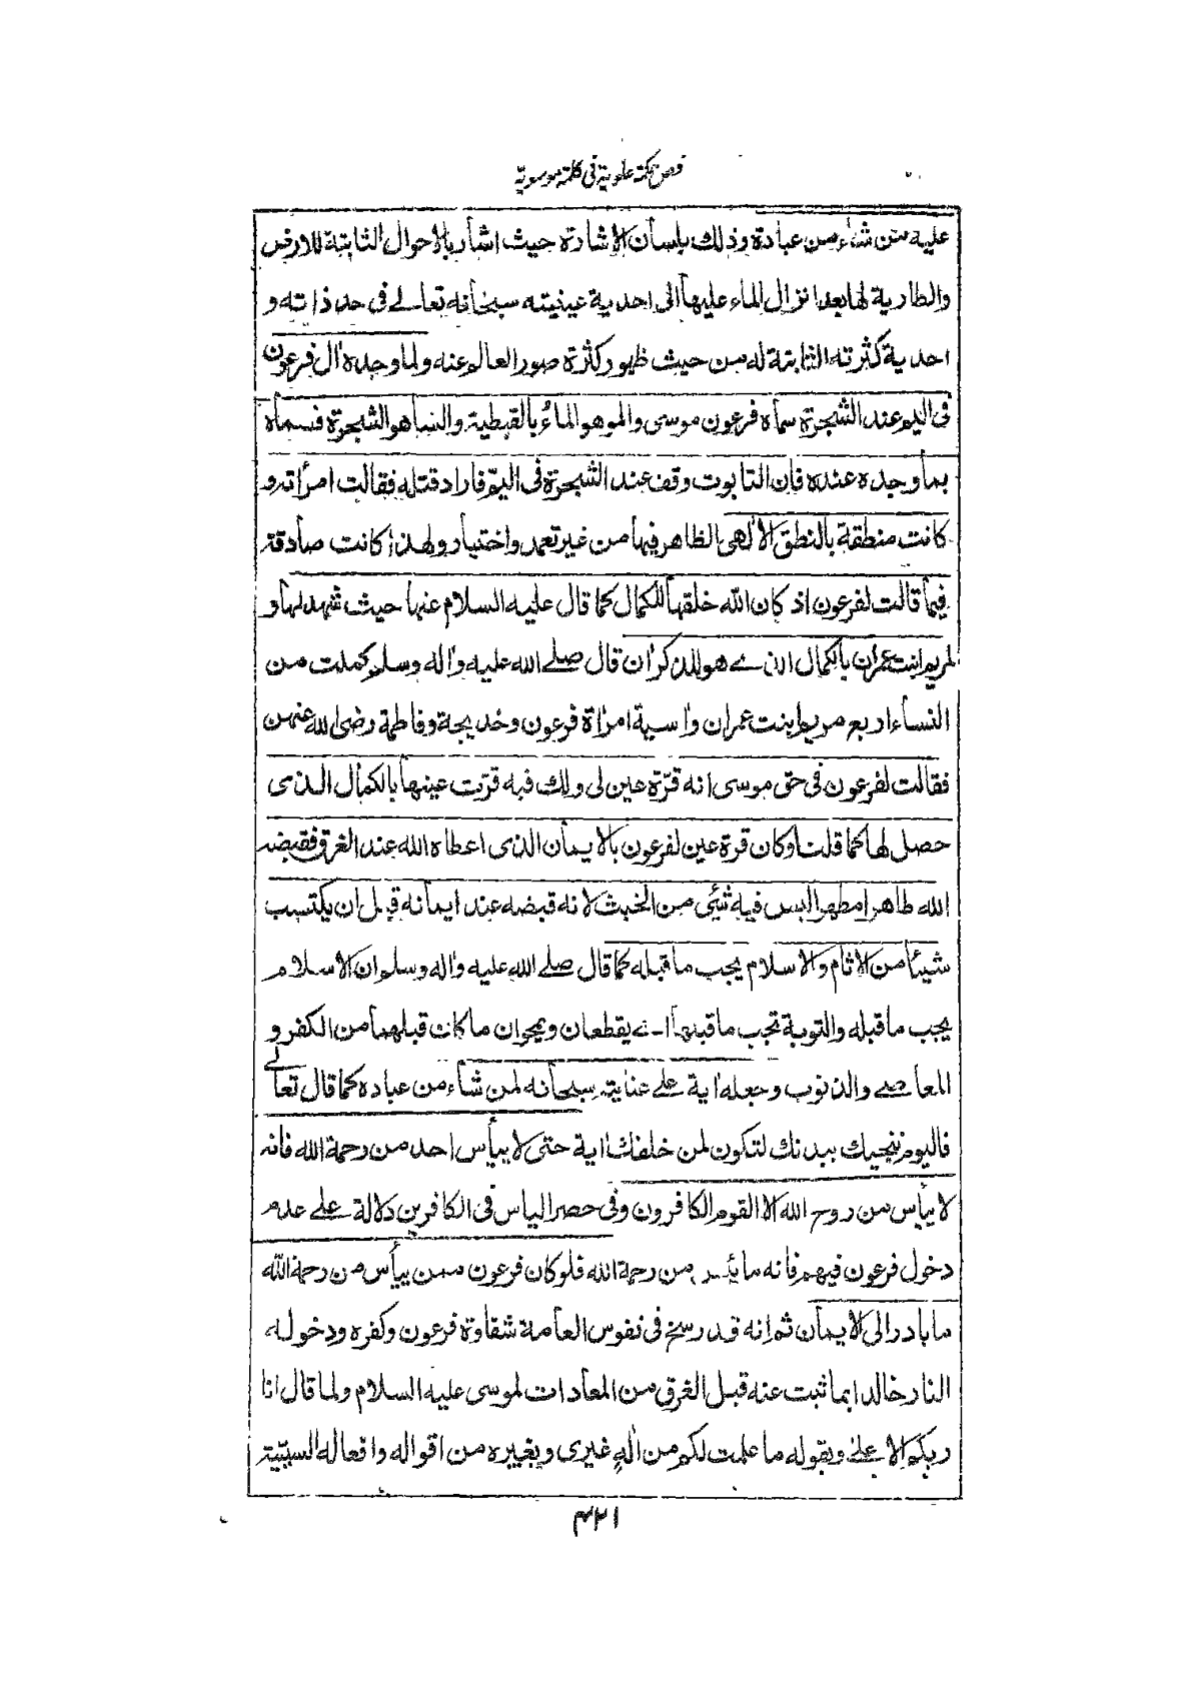 فص حكمة علوية فى كلمة موسوية
عليه من شاء من عبادة وذلك بلسان الاشارة حيث اشار بالاحوال الثابتة للارض
والطارية لها بعد انزال الماء عليها الى احدية عينيته سبحانه تعالے فى حد ذاته و
احدية كثرته الثابتة له من حيث ظهور كثرة صور العالم عنه ولما وجده اٰل فرعون
فى اليم عند الشجرة سماه فرعون موسى والمو هو الماءُ بالقبطية والسا هو الشجرة فسماه
بما وجده عنده فان التابوت وقف عند الشجرة فى اليمّ فاراد قتله فقالت امرأته و
كانت منطقة بالنطق الالٰهى الظاهر فيها من غير تعمد واختيار ولهذا كانت صادقة
فيما قالت لفرعون اذ كان الله خلقها للكمال كما قال عليه السلام عنها حيث شهد لها و
لمريم ابنت عمران بالكمال الذے هو للذكران قال صلے الله عليه واٰله وسلم كملت من
النساء اربع مريم ابنت عمران واٰسية امراة فرعون وخديجة وفاطمة رضى الله عنهن
فقالت لفرعون فى حق موسى انه قرّة عين لى ولك فبه قرّت عينها بالكمال الذى
حصل لها كما قلنا وكان قرة عين لفرعون بالايمان الذى اعطاه الله عند الغرق فقبضه
الله طاهرا مطهرا ليس فيه شئى من الخبث لانه قبضه عند ايمانه قبل ان يكتسب
شيئا من الاثام والاسلام يجب ما قبله كما قال صلے الله عليه واٰله وسلم ان الاسلام
يجب ما قبله والتوبة تجب ما قبلها اے يقطعان ويمحوان ما كانت قبلهما من الكفر و
المعاصے والذنوب وجعله اٰية علے عنايته سبحانه لمن شاء من عباده كما قال تعالے
فاليوم ننجيك ببدنك لتكون لمن خلفك اٰية حتى لا ييأس احد من رحمة الله فانه
لا ييأس من روح الله الا القوم الكافرون وفى حصر الياس فى الكافرين دلالة علے عدم
دخول فرعون فيهم فانه ما يئس من رحمة الله فلو كان فرعون ممن ييأس من رحمة الله
ما بادر الى الايمان ثم انه قد رسخ فى نفوس العامة شقاوة فرعون وكفره ودخوله
النار خالدا بما ثبت عنه قبل الغرق من المعادات لموسى عليه السلام ولما قال انا
ربكم الاعلے وبقوله ما علمت لكم من الٰهٍ غيرى وبغيره من اقواله وافعاله السيّئة
٣٢١